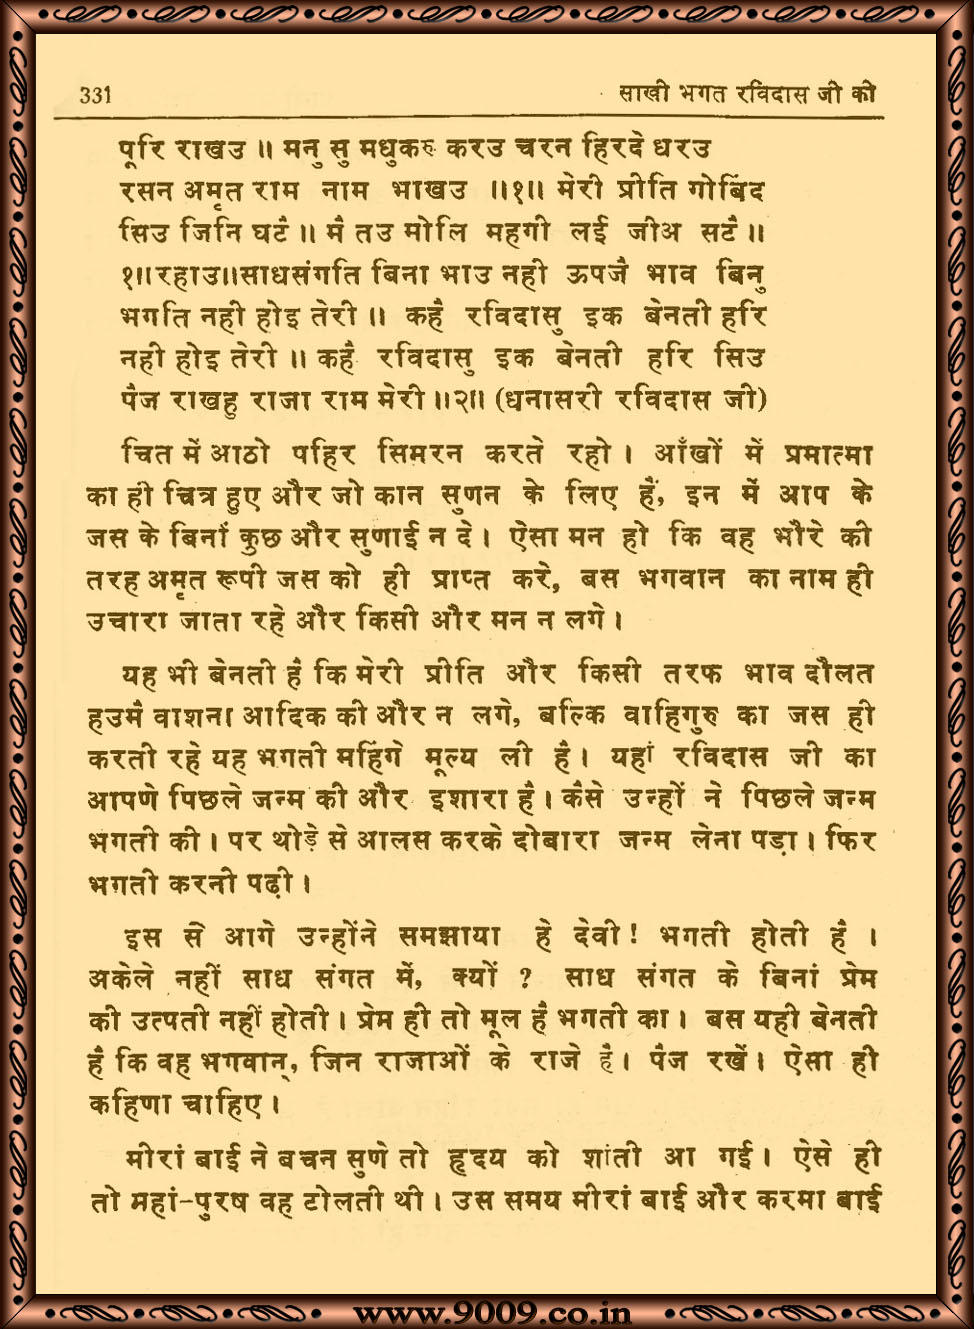 331 साखी भगत रविदास जी की
पूरि राखउ ॥ मनु सु मधुकरु करउ चरन हिरदे धरउ
रसन अमृत राम नाम भाखउ ॥१॥ मेरी प्रीति गोबिंद
सिउ जिनि घटै ॥ मै तउ मोलि महगी लई जीअ सटै ॥
१॥रहाउ॥साधसंगति बिना भाउ नही ऊपजै भाव बिनु
भगति नही होइ तेरी ॥ कहै रविदासु इक बेनती हरि
नही होइ तेरी ॥ कहै रविदासु इक बेनती हरि सिउ
पैज राखहु राजा राम मेरी ॥२॥ (धनासरी रविदास जी)
चित में आठो पहिर सिमरन करते रहो । आँखों में प्रमात्मा
का ही चित्र हुए और जो कान सुणन के लिए हैं, इन में आप के
जस के बिनां कुछ और सुणाई न दे । ऐसा मन हो कि वह भौरे की
तरह अमृत रूपी जस को ही प्राप्त करे, बस भगवान का नाम ही
उचारा जाता रहे और किसी और मन न लगे ।
यह भी बेनती है कि मेरी प्रीति और किसी तरफ भाव दौलत
हउमै वाशना आदिक की और न लगे, बल्कि वाहिगुरु का जस ही
करती रहे यह भगती महिंगे मूल्य ली है । यहां रविदास जी का
आपणे पिछले जन्म की और इशारा है । कैसे उन्हों ने पिछले जन्म
भगती की । पर थोड़े से आलस करके दोबारा जन्म लेना पड़ा । फिर
भगती करनी पढ़ी ।
इस से आगे उन्होंने समझाया हे देवी ! भगती होती है ।
अकेले नहीं साध संगत में, क्यों ? साध संगत के बिनां प्रेम
की उत्पती नहीं होती । प्रेम ही तो मूल है भगती का । बस यही बेनती
है कि वह भगवान्, जिन राजाओं के राजे है । पैज रखें । ऐसा ही
कहिणा चाहिए ।
मीरां बाई ने बचन सुणे तो हृदय को शांती आ गई । ऐसे ही
तो महां-पुरष वह टोलती थी । उस समय मीरां बाई और करमा बाई
www.9009.co.in